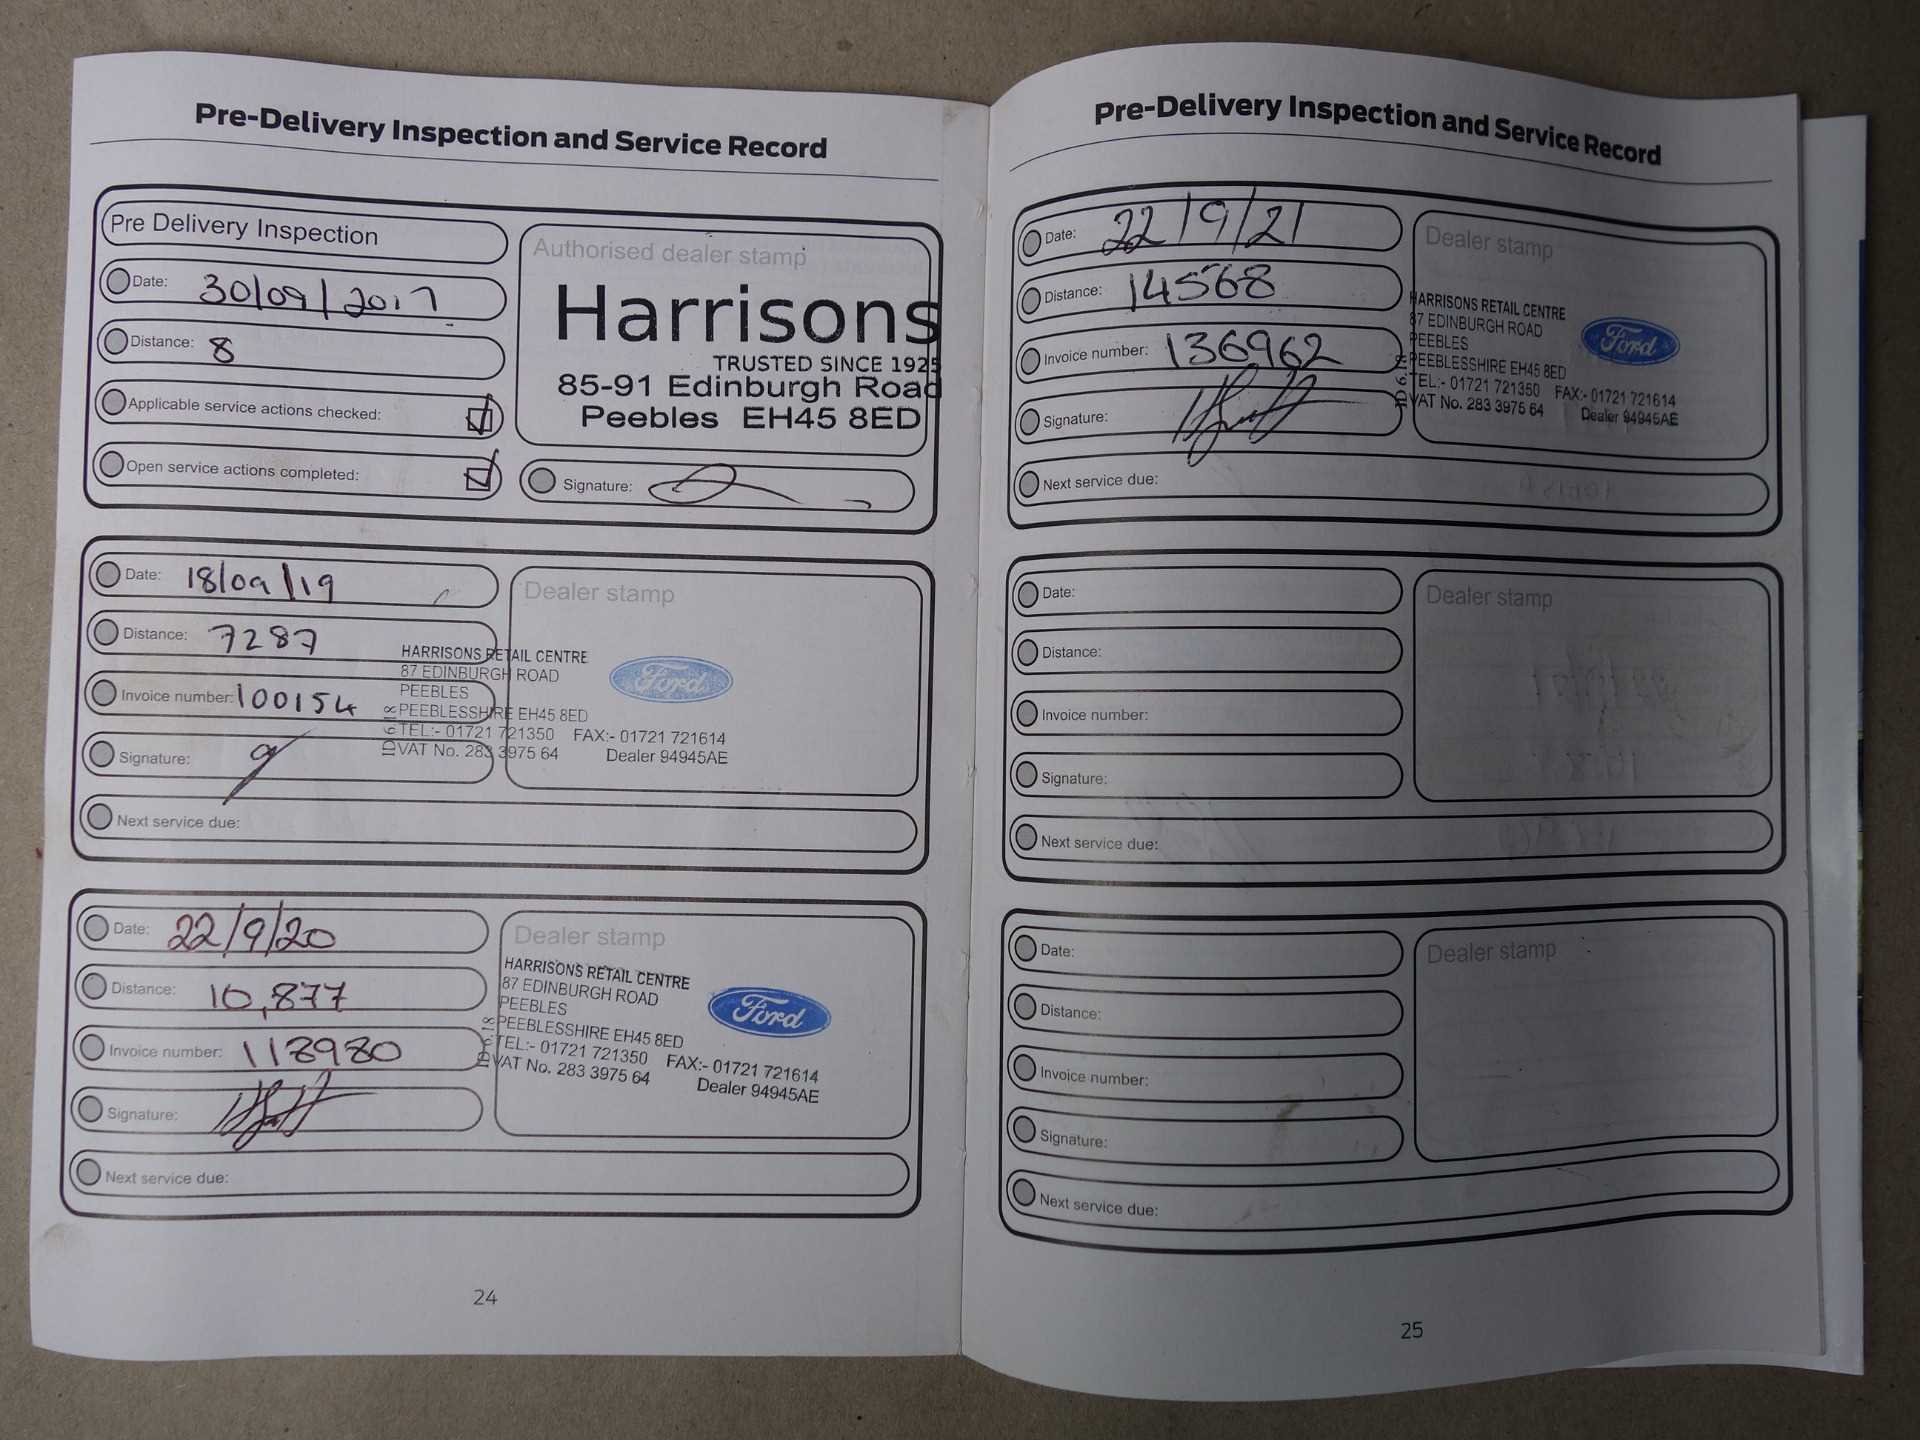 Pre-Delivery Inspection and Service Record
Pre Delivery Inspection
Date: 30/09/2017
Distance: 8
Applicable service actions checked:
Open service actions completed:
Authorised dealer stamp
Harrisons
TRUSTED SINCE 1925
85-91 Edinburgh Road
Peebles EH45 8ED
Signature:
Date: 18/09/19
Distance: 7287
Invoice number: 100154
Signature:
Next service due:
Dealer stamp
HARRISONS RETAIL CENTRE
87 EDINBURGH ROAD
PEEBLES
PEEBLESSHIRE EH45 8ED
TEL:- 01721 721350 FAX:- 01721 721614
VAT No. 283 3975 64 Dealer 94945AE
ID 6.18
Ford
Date: 22/9/20
Distance: 10,877
Invoice number: 118980
Signature:
Next service due:
Dealer stamp
HARRISONS RETAIL CENTRE
87 EDINBURGH ROAD
PEEBLES
PEEBLESSHIRE EH45 8ED
TEL:- 01721 721350 FAX:- 01721 721614
VAT No. 283 3975 64 Dealer 94945AE
ID 6.18
Ford
24
Pre-Delivery Inspection and Service Record
Date: 22/9/21
Distance: 14568
Invoice number: 136962
Signature:
Next service due:
Dealer stamp
HARRISONS RETAIL CENTRE
87 EDINBURGH ROAD
PEEBLES
PEEBLESSHIRE EH45 8ED
TEL:- 01721 721350 FAX:- 01721 721614
VAT No. 283 3975 64 Dealer 94945AE
ID 6.18
Ford
Date:
Distance:
Invoice number:
Signature:
Next service due:
Dealer stamp
Date:
Distance:
Invoice number:
Signature:
Next service due:
Dealer stamp
25